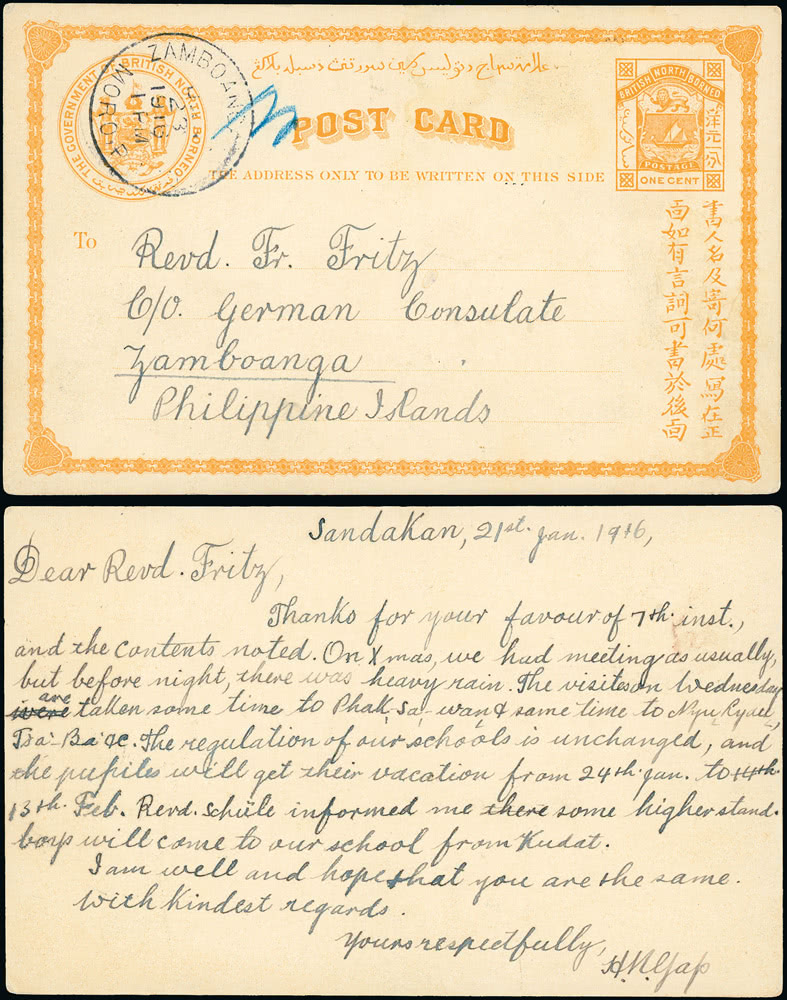 THE GOVERNMENT OF BRITISH NORTH BORNEO
ZAMBOANGA
MORO P
23
1916
POST CARD
THE ADDRESS ONLY TO BE WRITTEN ON THIS SIDE
BRITISH NORTH BORNEO
洋元一分
POSTAGE
ONE CENT
書人名及寄何處寫在正
面如有言詞可書於後面
To
Revd. Fr. Fritz
C/o. German Consulate
Zamboanga
Philippine Islands
Sandakan, 21st. Jan. 1916,
Dear Revd. Fritz,
Thanks for your favour of 7th. inst.,
and the contents noted. On Xmas, we had meeting as usually,
but before night, there was heavy rain. The visites on Wednesday
were are taken some time to Phak Sa wan & same time to Nyu
Tsa-Ba &c. The regulation of our schools is unchanged, and
the pupiles will get their vacation from 24th. Jan. to 14th.
13th. Feb. Revd. Schüle informed me there some higher stand.
boys will come to our school from Kudat.
I am well and hope that you are the same.
With kindest regards.
Yours respectfully,
Yap